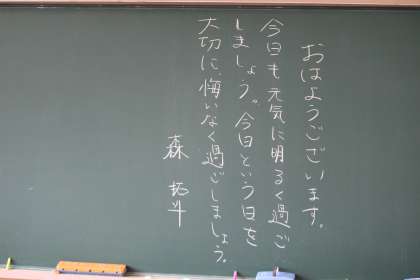 おはようございます。
今日も元気に明るく過ご
しましょう。今日という日を
大切に、悔いなく過ごしましょう。
森 拓斗